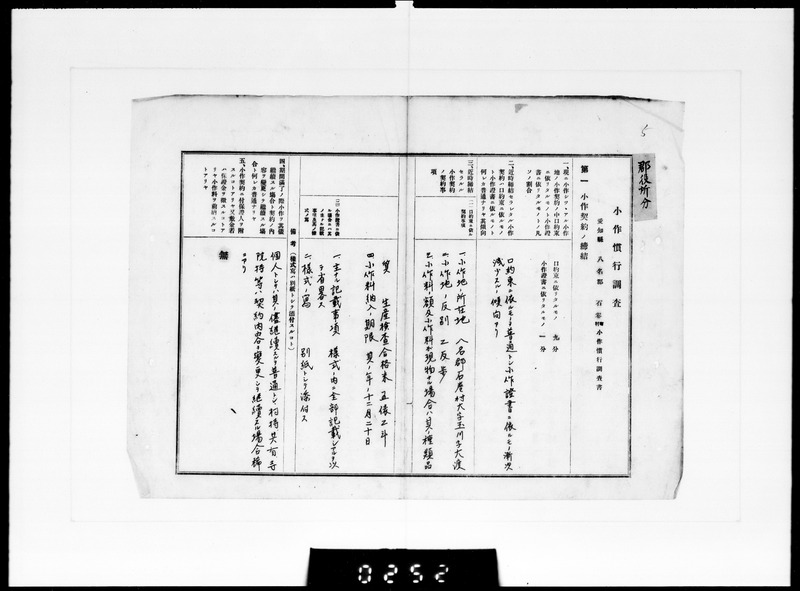 5
郡役所分
小作慣行調査
愛知縣 八名郡 石巻村 小作慣行調査書
第一 小作契約ノ締結
一、現ニ小作シツヽアル小作
地ノ小作契約中口約束
ニ依リタルモノト小作證
書ニ依リタルモノトノ凡
ソノ割合
口約束ニ依リタルモノ 九分
小作證書ニ依リタルモノ 一分
二、近時締結セラルヽ小作
契約ハ口約束ニ依ルモノ
ト小作證書ニ依ルモノト
何レカ普通ナリヤ其傾向
口約束ニ依ルモノヲ普通トシ小作證書ニ依ルモノ漸次
減少スル傾向アリ
三、近時締結
セラルヽ
小作契約
ノ契約事
項
(一)口約束ニ依ル
契約事項
一、小作地ノ所在地 八名郡石巻村大字玉川字大渡
二、小作地ノ反別 乙反歩
三、小作料ノ額及小作料ガ現物ナル場合ハ其ノ種類品
質 生産検査合格米 五俵乙斗
四、小作料納入ノ期限 其ノ年ノ十二月二十日
一、主ナル記載事項 様式ノ内ニ全部記載シアルヲ以
テ省略ス
二、様式ノ寫 別紙トシテ添付ス
備考 (様式寫ハ別紙トシテ添付スルコト)
四、期間滿了ノ際小作ヲ其儘
繼續スル場合ト契約ノ内
容ヲ變更シテ繼續スル場
合ト何レカ普通ナリヤ
個人トシテハ其ノ儘継續スルヲ普通トシ村持共有寺
院持等ハ契約内容ヲ變更シテ継續スル場合稀
ニアリ
五、小作契約ニ付保證人ヲ附
スルコトアリヤ又敷金若
ハ保證金ヲ徴スルコトア
リヤ小作料ヲ前納スルコ
トアリヤ
無
0252